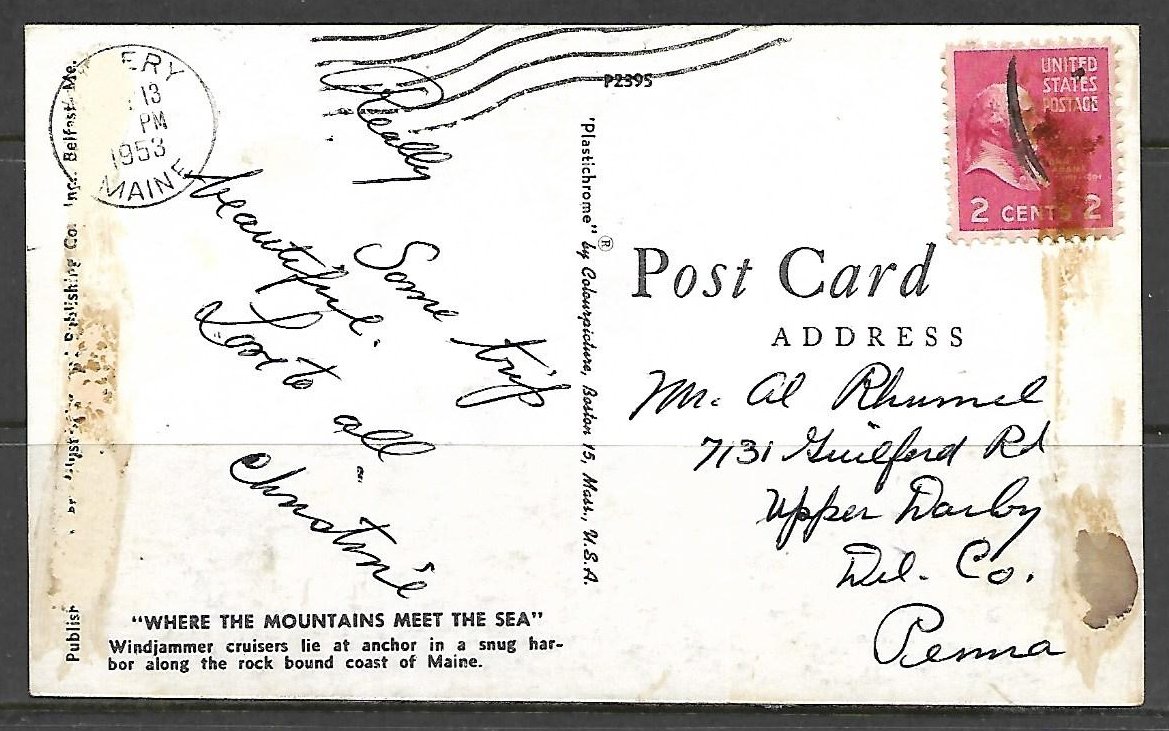 ERY
13
PM
1953
MAINE
P2395
UNITED
STATES
POSTAGE
2 CENTS 2
Really
beautiful.
Some trip
Love to
all
Christine
"WHERE THE MOUNTAINS MEET THE SEA"
Windjammer cruisers lie at anchor in a snug har-
bor along the rock bound coast of Maine.
Publishing Co. Belfast, Me.
"Plastichrome" ® by Colourpicture, Boston 15, Mass., U.S.A.
Post Card
ADDRESS
Mr. Al Rhumel
7131 Guilford Rd
Upper Darby
Del. Co.
Penna